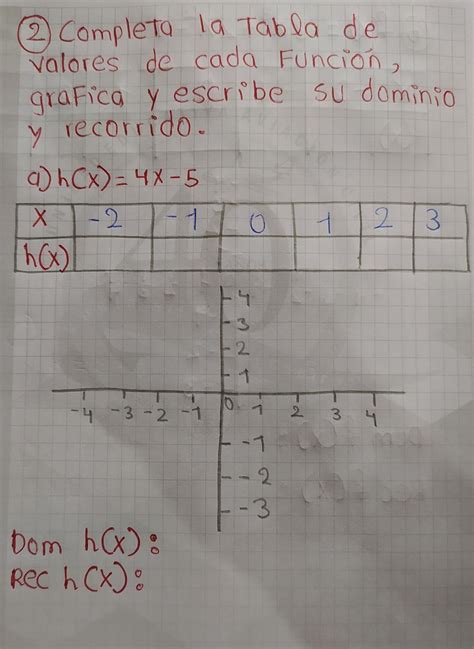 ② Completa la Tabla de
valores de cada Función,
grafica y escribe su dominio
y recorrido.
a) h(x) = 4x - 5
x -2 -1 0 1 2 3
h(x)
4
3
2
1
-4 -3 -2 -1 0 1 2 3 4
-1
-2
-3
Dom h(x):
Rec h(x):